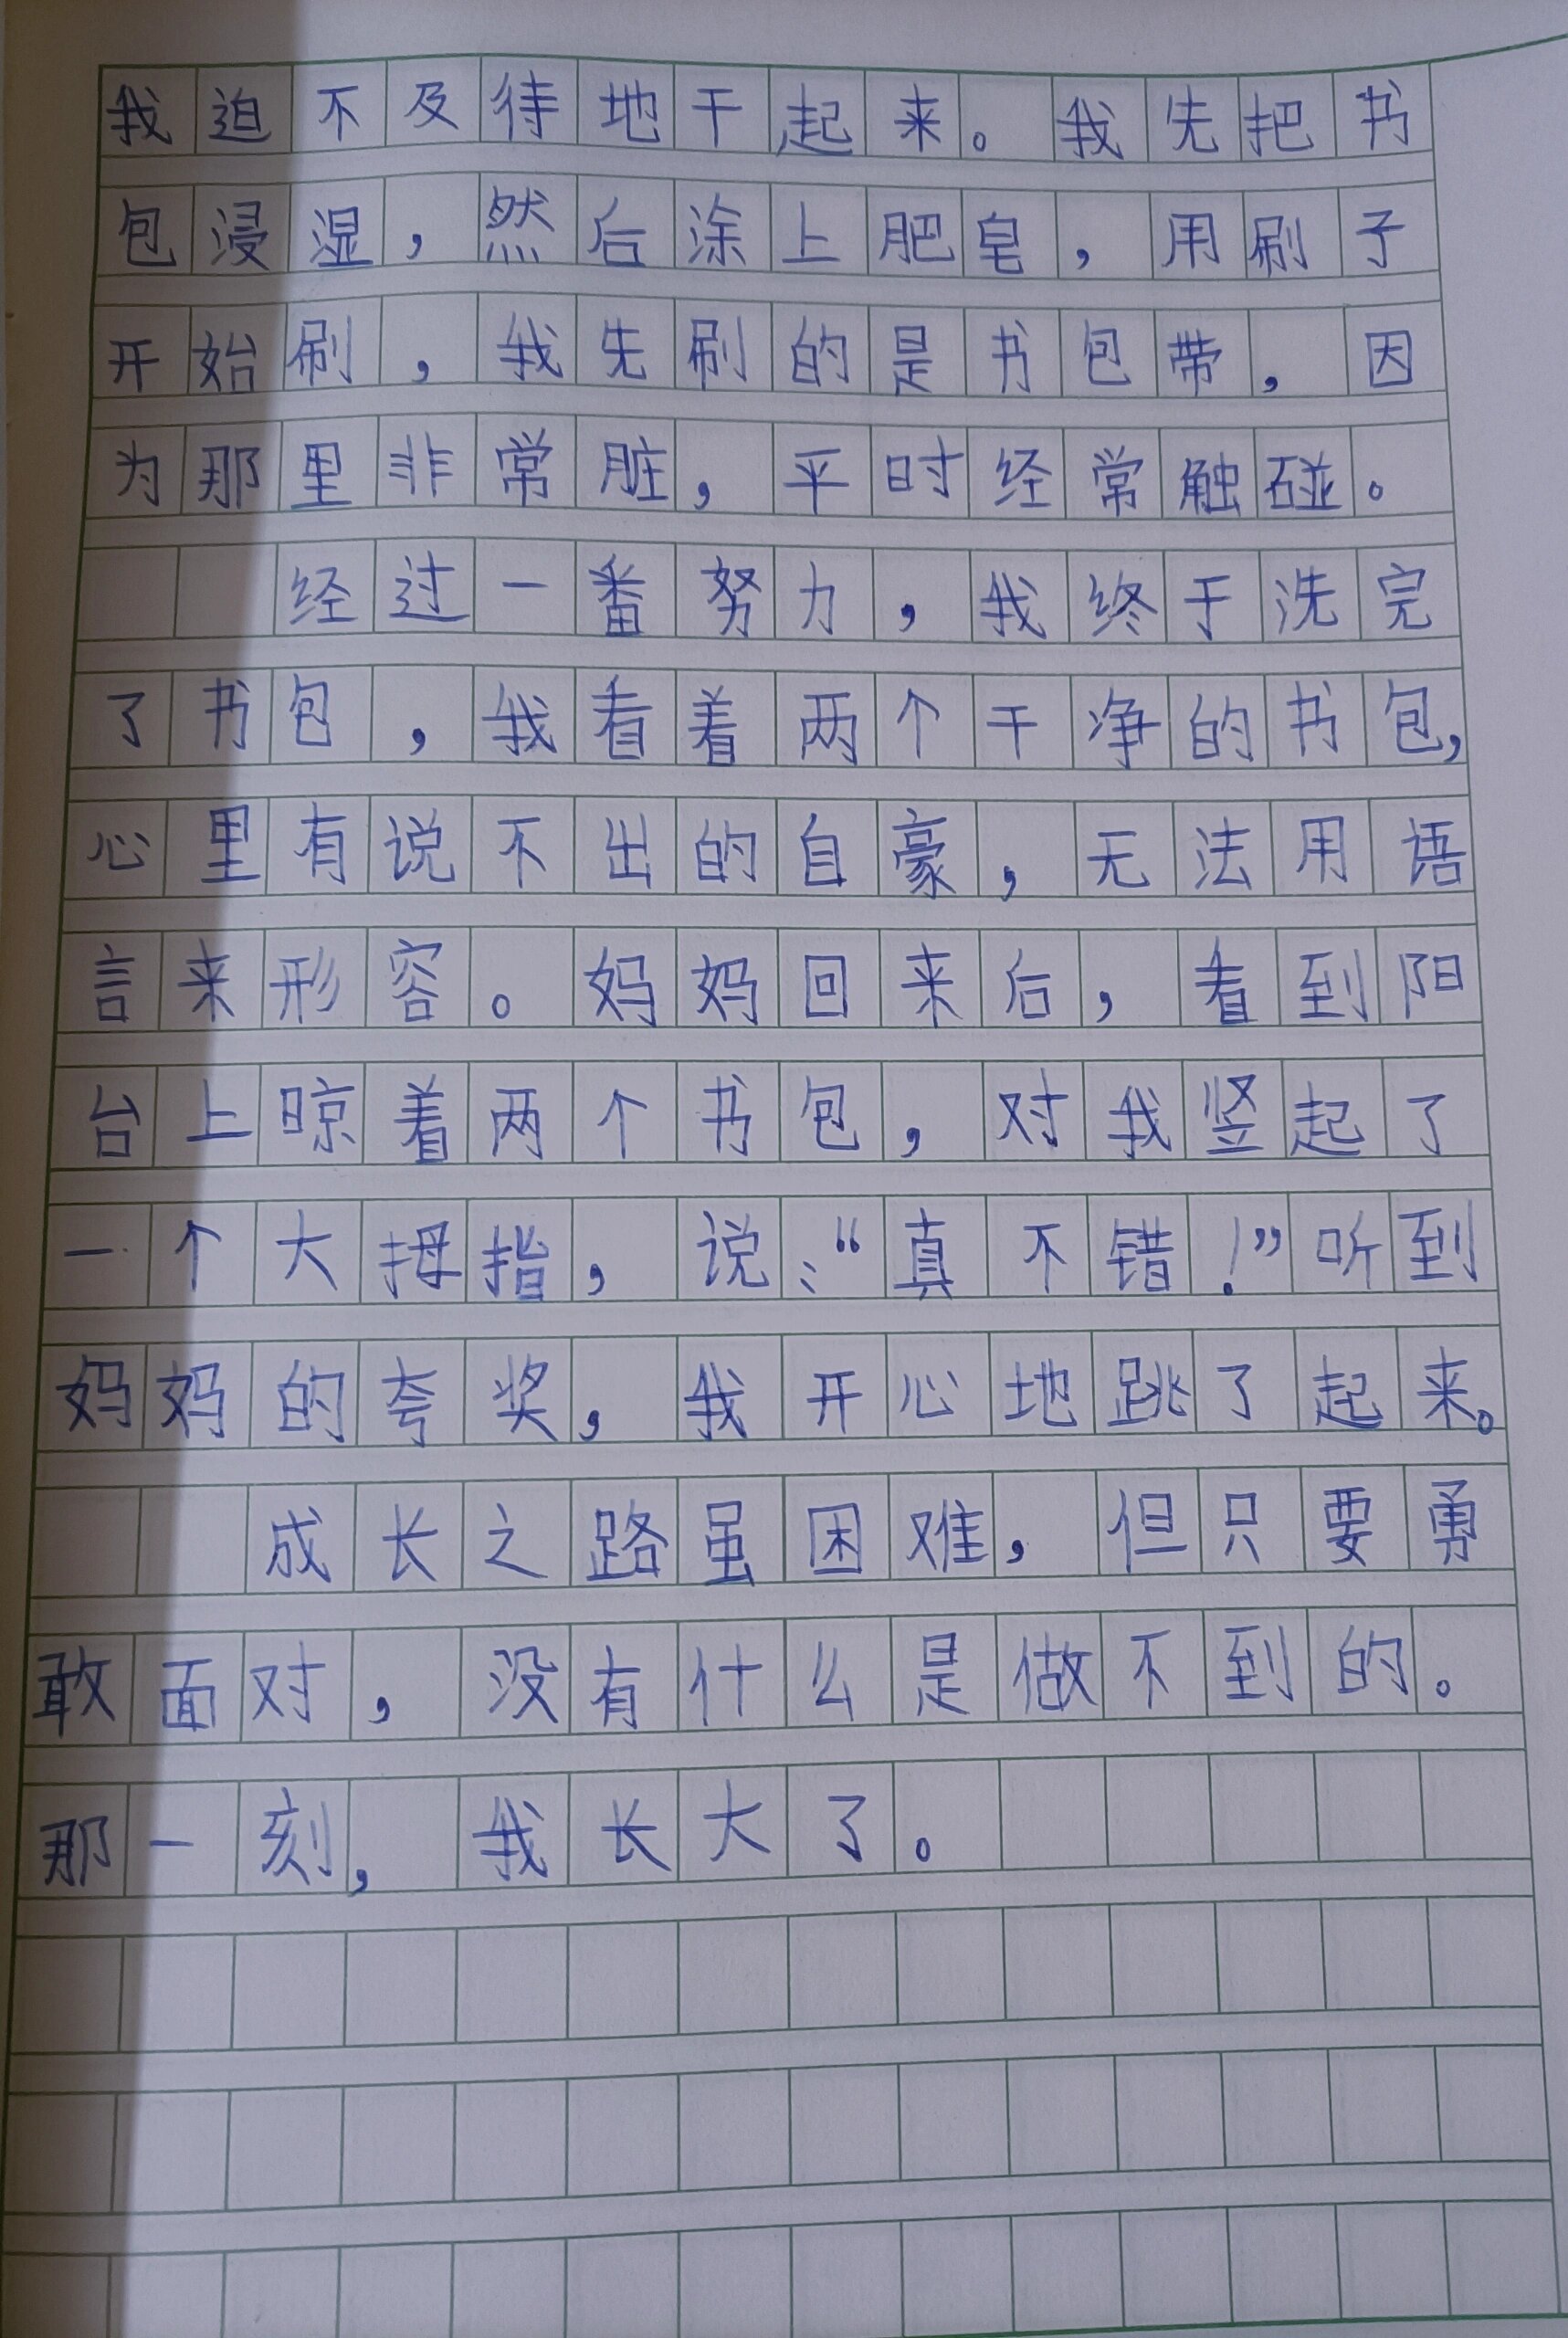 我迫不及待地干起来。我先把书
包浸湿，然后涂上肥皂，用刷子
开始刷，我先刷的是书包带，因
为那里非常脏，平时经常触碰。
经过一番努力，我终于洗完
了书包，我看着两个干净的书包，
心里有说不出的自豪，无法用语
言来形容。妈妈回来后，看到阳
台上晾着两个书包，对我竖起了
一个大拇指，说：“真不错！”听到
妈妈的夸奖，我开心地跳了起来。
成长之路虽困难，但只要勇
敢面对，没有什么是做不到的。
那一刻，我长大了。